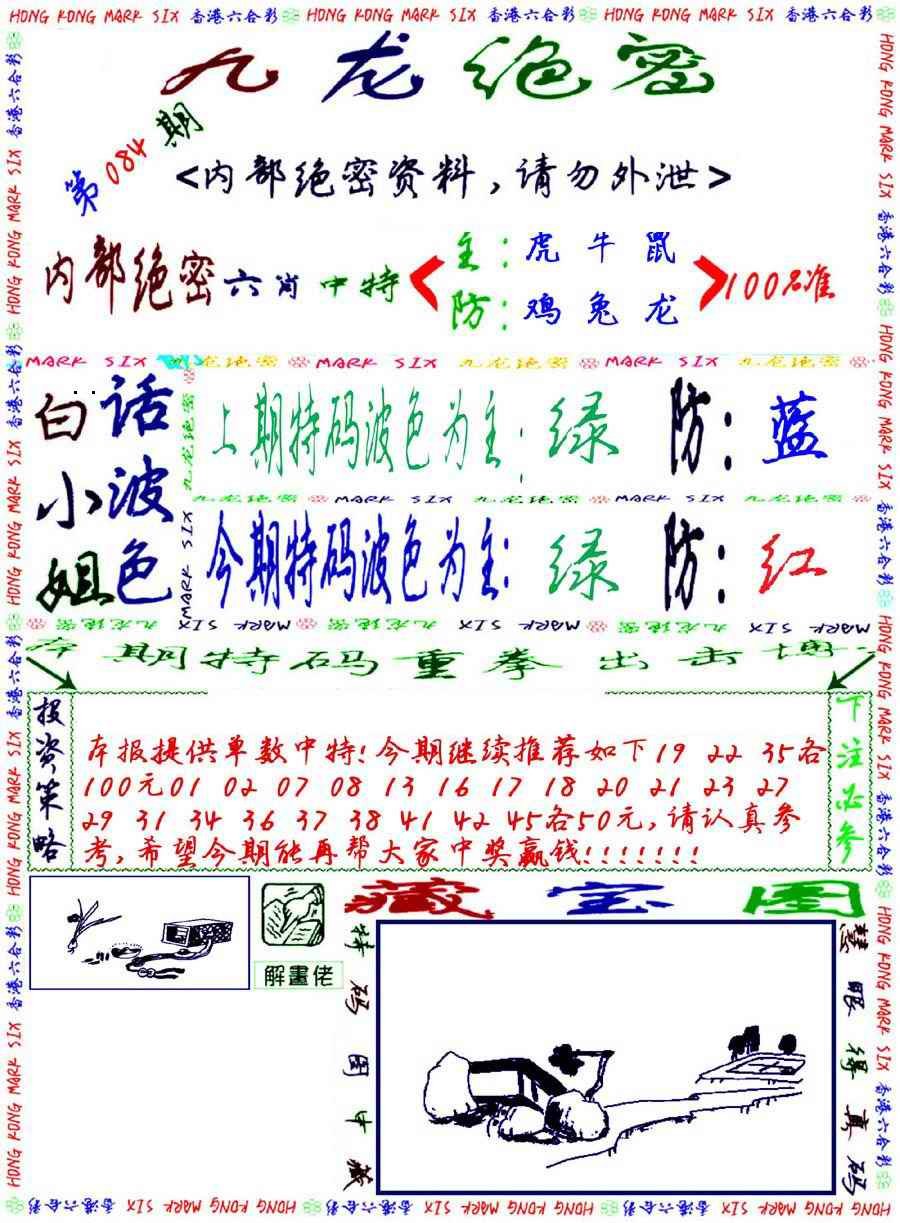 HONG KONG MARK SIX 香港六合彩 HONG KONG MARK SIX 香港六合彩 HONG KONG MARK SIX 香港六合彩
九龙绝密
第084期
<内部绝密资料,请勿外泄>
内部绝密六肖中特
主:虎牛鼠
防:鸡兔龙
100%准
MARK SIX 九龙绝密 MARK SIX 九龙绝密 MARK SIX 九龙绝密
白话
小波
姐色
上期特码波色为主:绿 防:蓝
九龙绝密 MARK SIX 九龙绝密 MARK SIX 九龙绝密
今期特码波色为主:绿 防:红
MARK SIX 九龙绝密 MARK SIX 九龙绝密 MARK SIX
本期特码重拳出击博一
投资策略
本报提供单数中特!今期继续推荐如下19 22 35各
100元01 02 07 08 13 16 17 18 20 21 23 27
29 31 34 36 37 38 41 42 45各50元,请认真参
考,希望今期能再帮大家中奖赢钱!!!!!!!
下注必参
解畫佬
藏宝图
特码图中藏
慧眼得真码
HONG KONG MARK SIX 香港六合彩 HONG KONG MARK SIX 香港六合彩 HONG KONG MARK SIX 香港六合彩